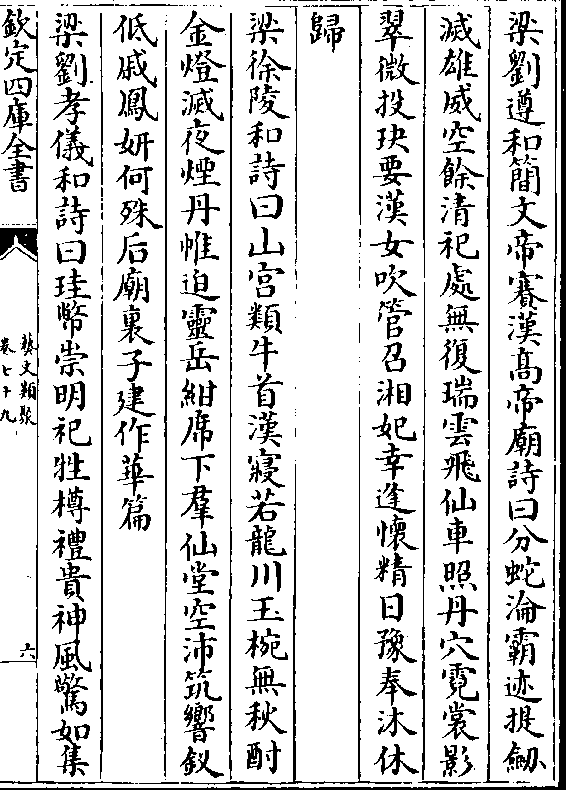 梁劉遵和簡文帝賽漢髙帝廟詩曰分蛇淪霸迹提劒
滅雄威空餘清祀處無復瑞雲飛仙車照丹穴霓裳影
翠微投玦要漢女吹管召湘妃幸逢懷精日豫奉沐休
歸
梁徐陵和詩曰山宫類牛首漢寢若龍川玉椀無秋酎
金燈滅夜煙丹帷迫靈岳紺席下羣仙堂空沛筑響釵
低戚鳳妍何殊后廟裏子建作華篇
梁劉孝儀和詩曰珪幣崇明祀牲樽禮貴神風驚如集
欽定四庫全書
藝文類聚
卷七十九
六